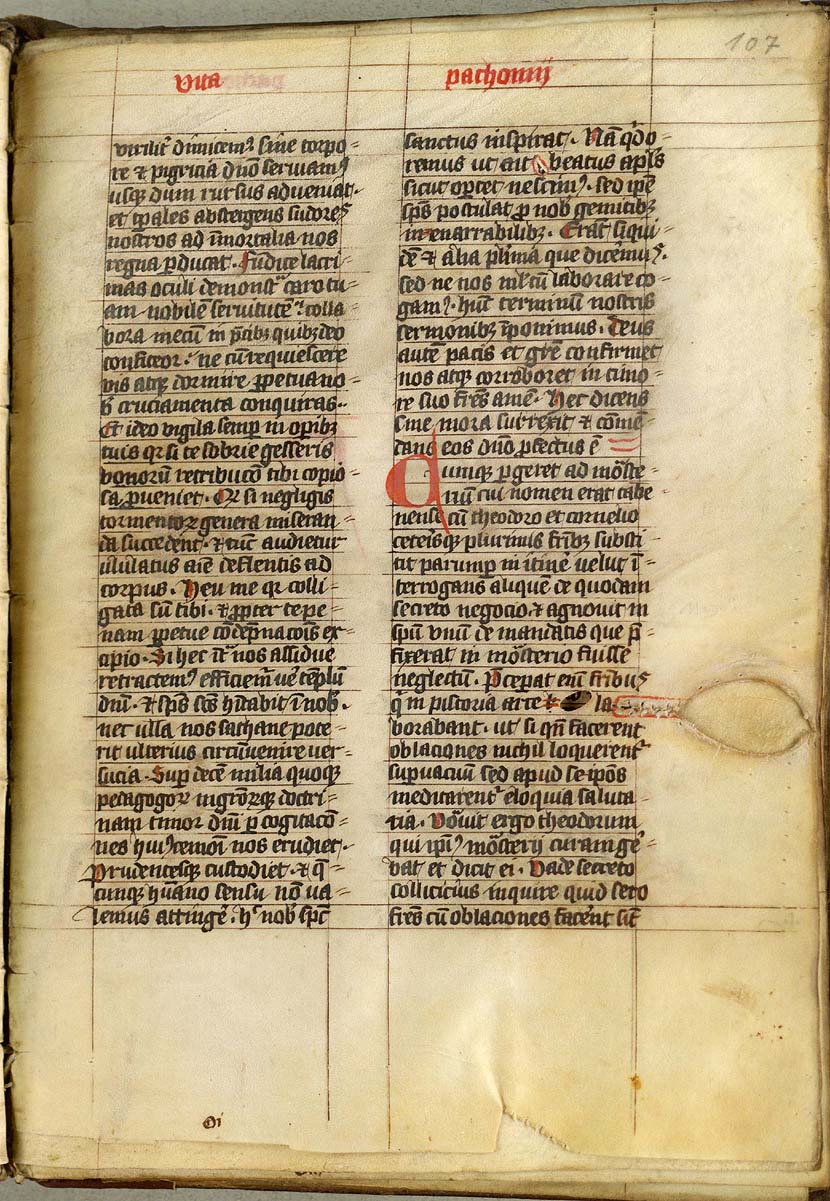 107
vita pachomij
virilit᷑ dimicemꝰ sine torpo=
re ⁊ pigricia dño seruiamꝰ
usq dum rursus adueniat.
et tꝑales abstergens sudores
nostros ad īmortalia nos
regna ꝑducat. Indice lacri=
mas oculi demonst᷑ caro tu=
am nobilem seruitutē. colla=
bora mecū in p̄cibꝫ quibꝫ deo
confiteor. ne cū requiescere
vis atqꝫ dormire ꝑpetua no=
b̄ cruciamenta conquiras..
Et ideo vigila semꝑ in oꝑibꝫ
tuis qr si te sobrie gesseris
bonorū retribucō tibi copio=
sa ꝑueniet. Qr si negligis
tormentoꝝ genera miseran=
da succedent. ⁊ tūc audietur
ululatus aīe deflentis ad
corpus. Heu me qr colli=
gata sū tibi. ⁊ ꝓpter te pe=
nam ꝑpetue cōdēpnacōis ex=
cipio. Si hec īt᷑ nos assidue
retractemꝰ efficiem᷑ ūe tēplū
dñi. ⁊ sp̄s sc̄s hītabit ī nob̄.
nec ulla nos sathane pote=
rit ulterius circūuenire ver=
sucia. Suꝑ decē milia quoqꝫ
pedagogoꝝ nigroꝝqꝫ doctri=
nam timor dñi ꝑ cogitacō=
nes huiꝰcemōi nos erudiet.
prudentesqꝫ custodiet. ⁊ q̄=
cunqꝫ hūano sensu nō va=
lemus attingē. hꝰ nob̄ sp̄c
sanctus inspirat. Nā qd̄ o=
remus ut ait beatus apl̄s
sicut oꝑtet nescimꝰ. sed ip̄e
sp̄s postulat ꝑ nob̄ gemitibꝫ
inenarrabilibꝫ. Erāt siqui=
dē ⁊ alia pl̄ima que dicemꝰ.
sed ne nos ml̄tū laborare co=
gamꝰ. hūc terminū nostris
sermonibꝫ īponimus. Deus
autē pacis et gr̄e confirmet
nos atqꝫ corroboret in timo=
re suo fr̄es amē. Hec dicens
sine mora surrexit ⁊ cōmē=
dans eos dño ꝓfectus ē
Cumqꝫ ꝑgeret ad mōste=
riū cui nomen erat tabe=
nense cū theodoro et cornelio
ceterisqꝫ plurimis fr̄ibꝫ substi=
tit parumꝑ in itinē velut ī=
terrogans aliquē de quodam
secreto negocio. ⁊ agnouit in
sp̄u vnū de mandatis que p̄=
fixerat in mōsterio fuisse
neglectū. Pceperat enī fribus
q̄ in pistoria arte la=
borabant. ut si qn̄ facerent
oblaciones nichil loquerent᷑
supuacuū sed apud se ip̄os
meditarent᷑ eloquia saluta=
ria. Vocāuit ergo theodorum
qui ip̄iꝰ mōsterij curam gē=
bat et dicit ei. Vade secreto
sollicicius inquire quid sero
fr̄es cū oblaciones facerēt sūt